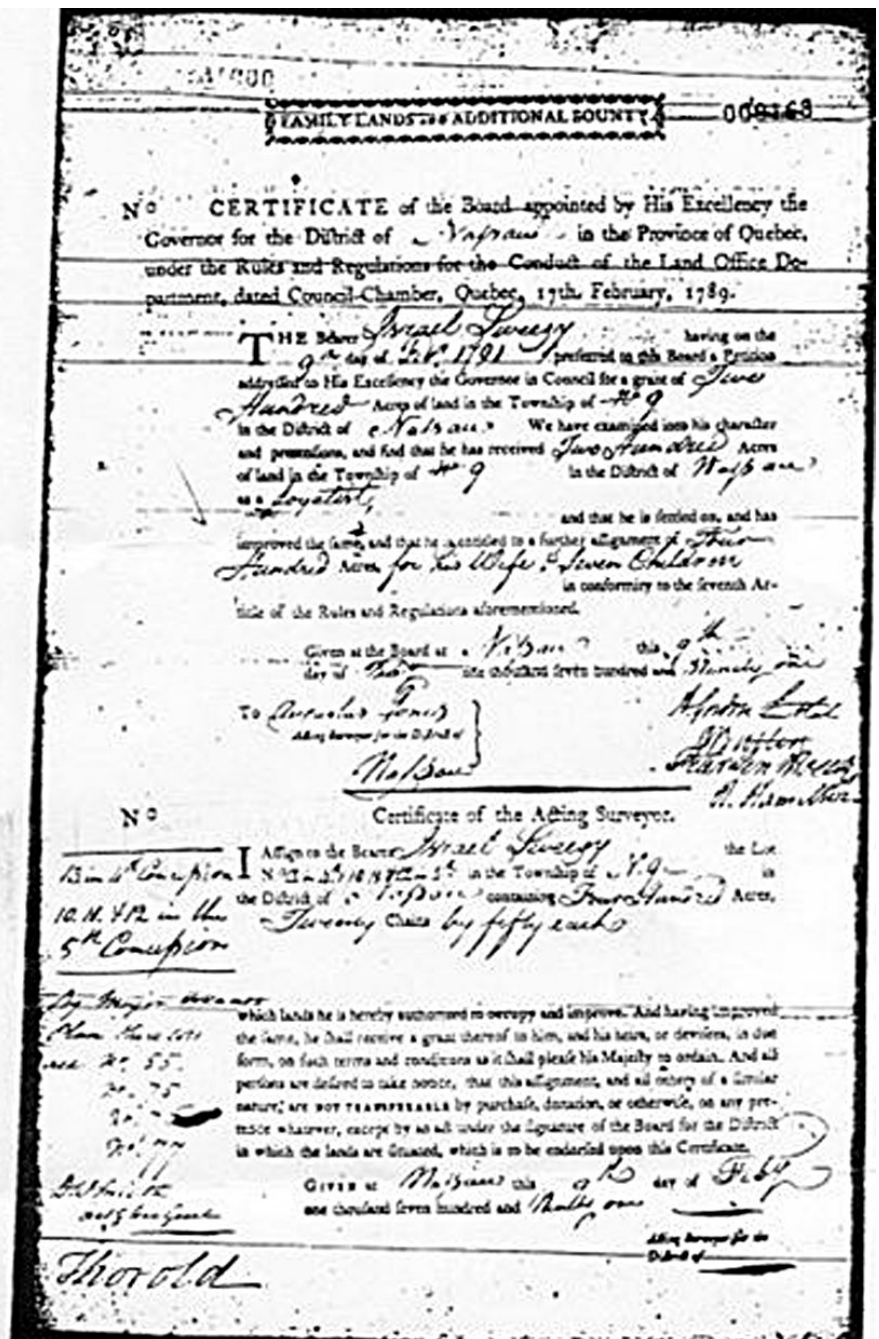 FAMILY LANDS AND ADDITIONAL BOUNTY
No CERTIFICATE of the Board appointed by His Excellency the
Governor for the District of Nassau in the Province of Quebec,
under the Rules and Regulations for the Conduct of the Land Office De-
partment, dated Council-Chamber, Quebec, 17th. February, 1789.
THE Bearer Israel Sweezy having on the
9th day of 1791 preferred to this Board a Petition
addressed to His Excellency the Governor in Council for a grant of Two
Hundred Acres of land in the Township of No 9
in the District of Nassau We have examined into his character
and pretensions, and find that he has received Two Hundred Acres
of land in the Township of No 9 in the District of Nassau
as a Loyalist,
and that he is settled on, and has
improved the same, and that he is entitled to a further assignment of Four
Hundred Acres, for his Wife & Seven Children
in conformity to the seventh Ar-
ticle of the Rules and Regulations aforementioned.
Given at the Board at Nassau this 9th
day of one thousand seven hundred and Ninety one
To Augustus Jones
Acting Surveyor for the District of
Nassau
R. Hamilton
No Certificate of the Acting Surveyor.
I Assign to the Bearer Israel Sweezy the Lot
in the Township of N. 9 in
the District of Nassau containing Four Hundred Acres,
Twenty Chains by fifty each
13 in 4th Concession
10. 11. & 12 in the
5th Concession
which lands he is hereby authorised to occupy and improve. And having improved
the same, he shall receive a grant thereof to him, and his heirs, or devisees, in due
form, on such terms and conditions as it shall please his Majesty to ordain. And all
persons are desired to take notice, that this assignment, and all others of a similar
nature, are NOT TRANSFERABLE by purchase, donation, or otherwise, on any pre-
tence whatever, except by an act under the signature of the Board for the District
in which the lands are situated, which is to be endorsed upon this Certificate.
GIVEN at Nassau this 9th day of Feby
one thousand seven hundred and one
Acting Surveyor for the
District of
Plan these lots
are No. 55.
No. 75
No. 77
Thorold